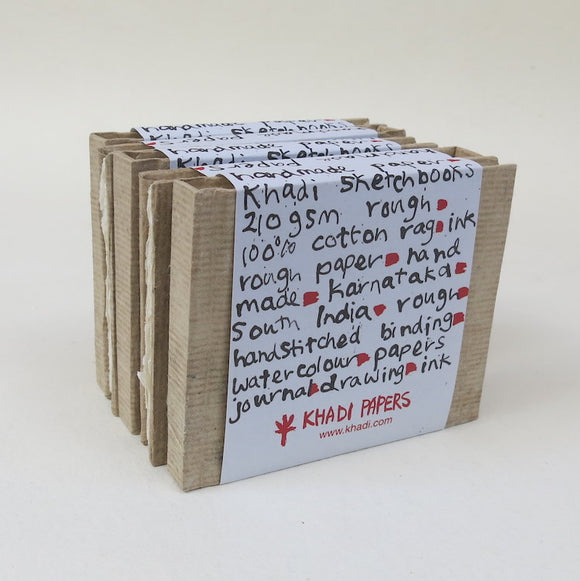 handmade papers
Khadi sketchbooks
handmade papers
Khadi sketchbooks
handmade papers
Khadi sketchbooks
210gsm rough
100% cotton rag ink
rough paper hand
made Karnataka
South India rough
handstitched binding
watercolour papers
journal drawing ink
KHADI PAPERS
www.khadi.com